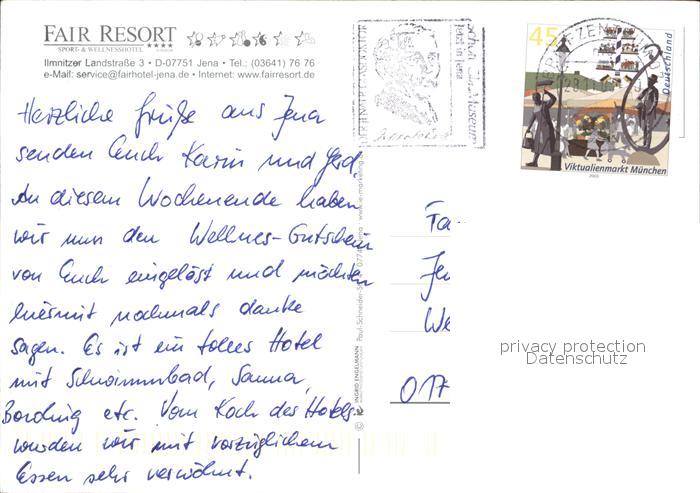 FAIR RESORT
SPORT- & WELLNESSHOTEL
Ilmnitzer Landstraße 3 • D-07751 Jena • Tel.: (03641) 76 76
e-Mail: service@fairhotel-jena.de • Internet: www.fairresort.de
Herzliche Grüße aus Jena
senden Euch Karin und Gerd.
An diesem Wochenende haben
wir nun den Wellnes-Gutschein
von Euch eingelöst und möchten
hiermit nochmals danke
sagen. Es ist ein tolles Hotel
mit Schwimmbad, Sauna,
Bowling etc. Vom Koch des Hotels
wurden wir mit vorzüglichem
Essen sehr verwöhnt.
© INGRID ENGELMANN
jetzt in Jena
45
Deutschland
Viktualienmarkt München
2003
BRIEFZENTRUM
Fa
Je
We
017
privacy protection
Datenschutz